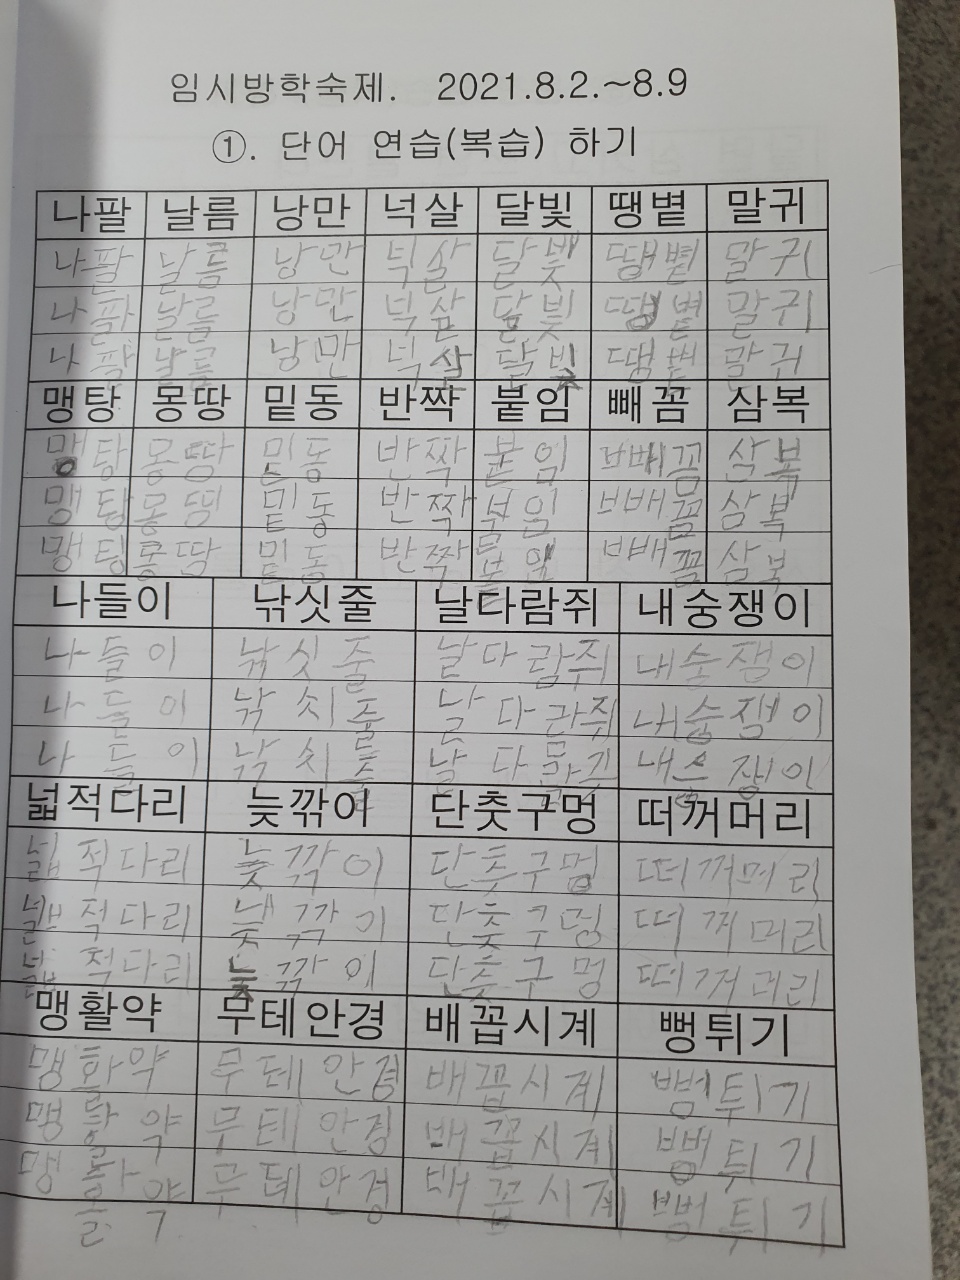 임시방학숙제. 2021.8.2.~8.9
①. 단어 연습(복습) 하기
나팔 날름 낭만 넉살 달빛 땡볕 말귀
나팔 날름 낭만 넉살 달빛 땡볕 말귀
나팔 날름 낭만 넉살 달빛 땡볕 말귀
나팔 날름 낭만 넉살 달빛 땡볕 말귀
맹탕 몽땅 밑동 반짝 붙임 빼꼼 삼복
맹탕 몽땅 밑동 반짝 붙임 빼꼼 삼복
맹탕 몽땅 밑동 반짝 붙임 빼꼼 삼복
맹탕 몽땅 밑동 반짝 붙임 빼꼼 삼복
나들이 낚싯줄 날다람쥐 내숭쟁이
나들이 낚싯줄 날다람쥐 내숭쟁이
나들이 낚싯줄 날다람쥐 내숭쟁이
나들이 낚싯줄 날다람쥐 내숭쟁이
넓적다리 늦깎이 단춧구멍 떠꺼머리
넓적다리 늦깎이 단춧구멍 떠꺼머리
넓적다리 늦깎이 단춧구멍 떠꺼머리
넓적다리 늦깎이 단춧구멍 떠꺼머리
맹활약 무테안경 배꼽시계 뻥튀기
맹활약 무테안경 배꼽시계 뻥튀기
맹활약 무테안경 배꼽시계 뻥튀기
맹활약 무테안경 배꼽시계 뻥튀기